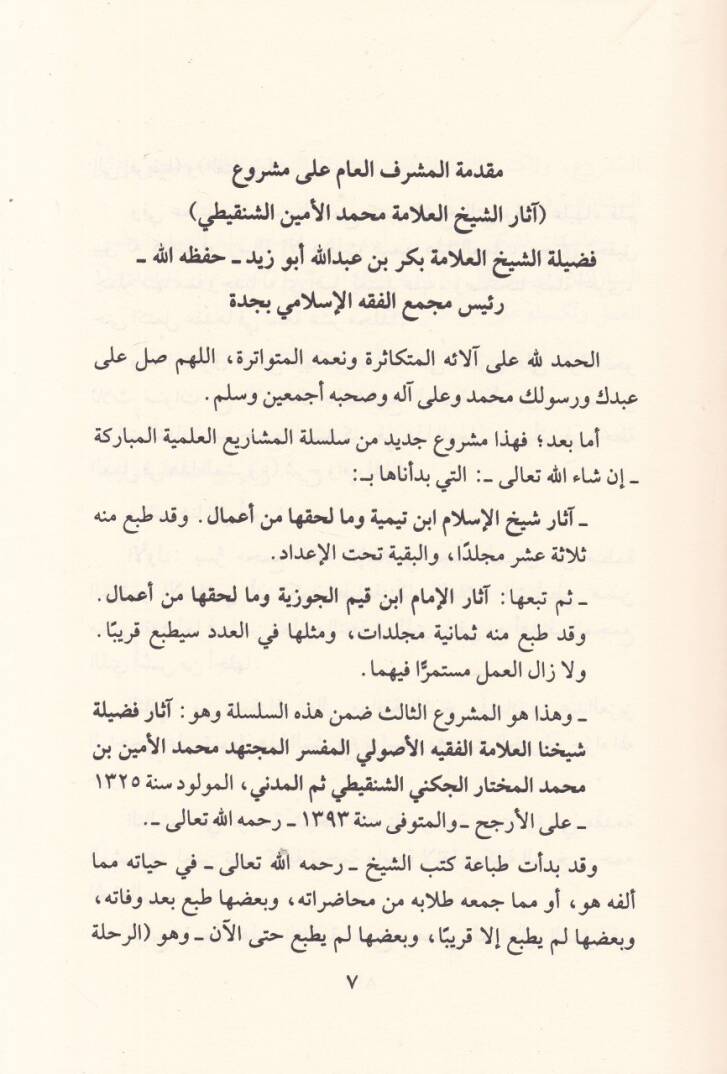 مقدمة المشرف العام على مشروع
(آثار الشيخ العلامة محمد الأمين الشنقيطي)
فضيلة الشيخ العلامة بكر بن عبدالله أبو زيد ـ حفظه الله ـ
رئيس مجمع الفقه الإسلامي بجدة
الحمد لله على آلائه المتكاثرة ونعمه المتواترة، اللهم صل على
عبدك ورسولك محمد وعلى آله وصحبه أجمعين وسلم.
أما بعد؛ فهذا مشروع جديد من سلسلة المشاريع العلمية المباركة
ـ إن شاء الله تعالى ـ: التي بدأناها بـ:
ـ آثار شيخ الإسلام ابن تيمية وما لحقها من أعمال. وقد طبع منه
ثلاثة عشر مجلدًا، والبقية تحت الإعداد.
ـ ثم تبعها: آثار الإمام ابن قيم الجوزية وما لحقها من أعمال.
وقد طبع منه ثمانية مجلدات، ومثلها في العدد سيطبع قريبًا.
ولا زال العمل مستمرًا فيهما.
ـ وهذا هو المشروع الثالث ضمن هذه السلسلة وهو: آثار فضيلة
شيخنا العلامة الفقيه الأصولي المفسر المجتهد محمد الأمين بن
محمد المختار الجكني الشنقيطي ثم المدني، المولود سنة ١٣٢٥
ـ على الأرجح ـ والمتوفى سنة ١٣٩٣ ـ رحمه الله تعالى ـ.
وقد بدأت طباعة كتب الشيخ ـ رحمه الله تعالى ـ في حياته مما
ألفه هو، أو مما جمعه طلابه من محاضراته، وبعضها طبع بعد وفاته،
وبعضها لم يطبع إلا قريبًا، وبعضها لم يطبع حتى الآن ـ وهو (الرحلة
٧